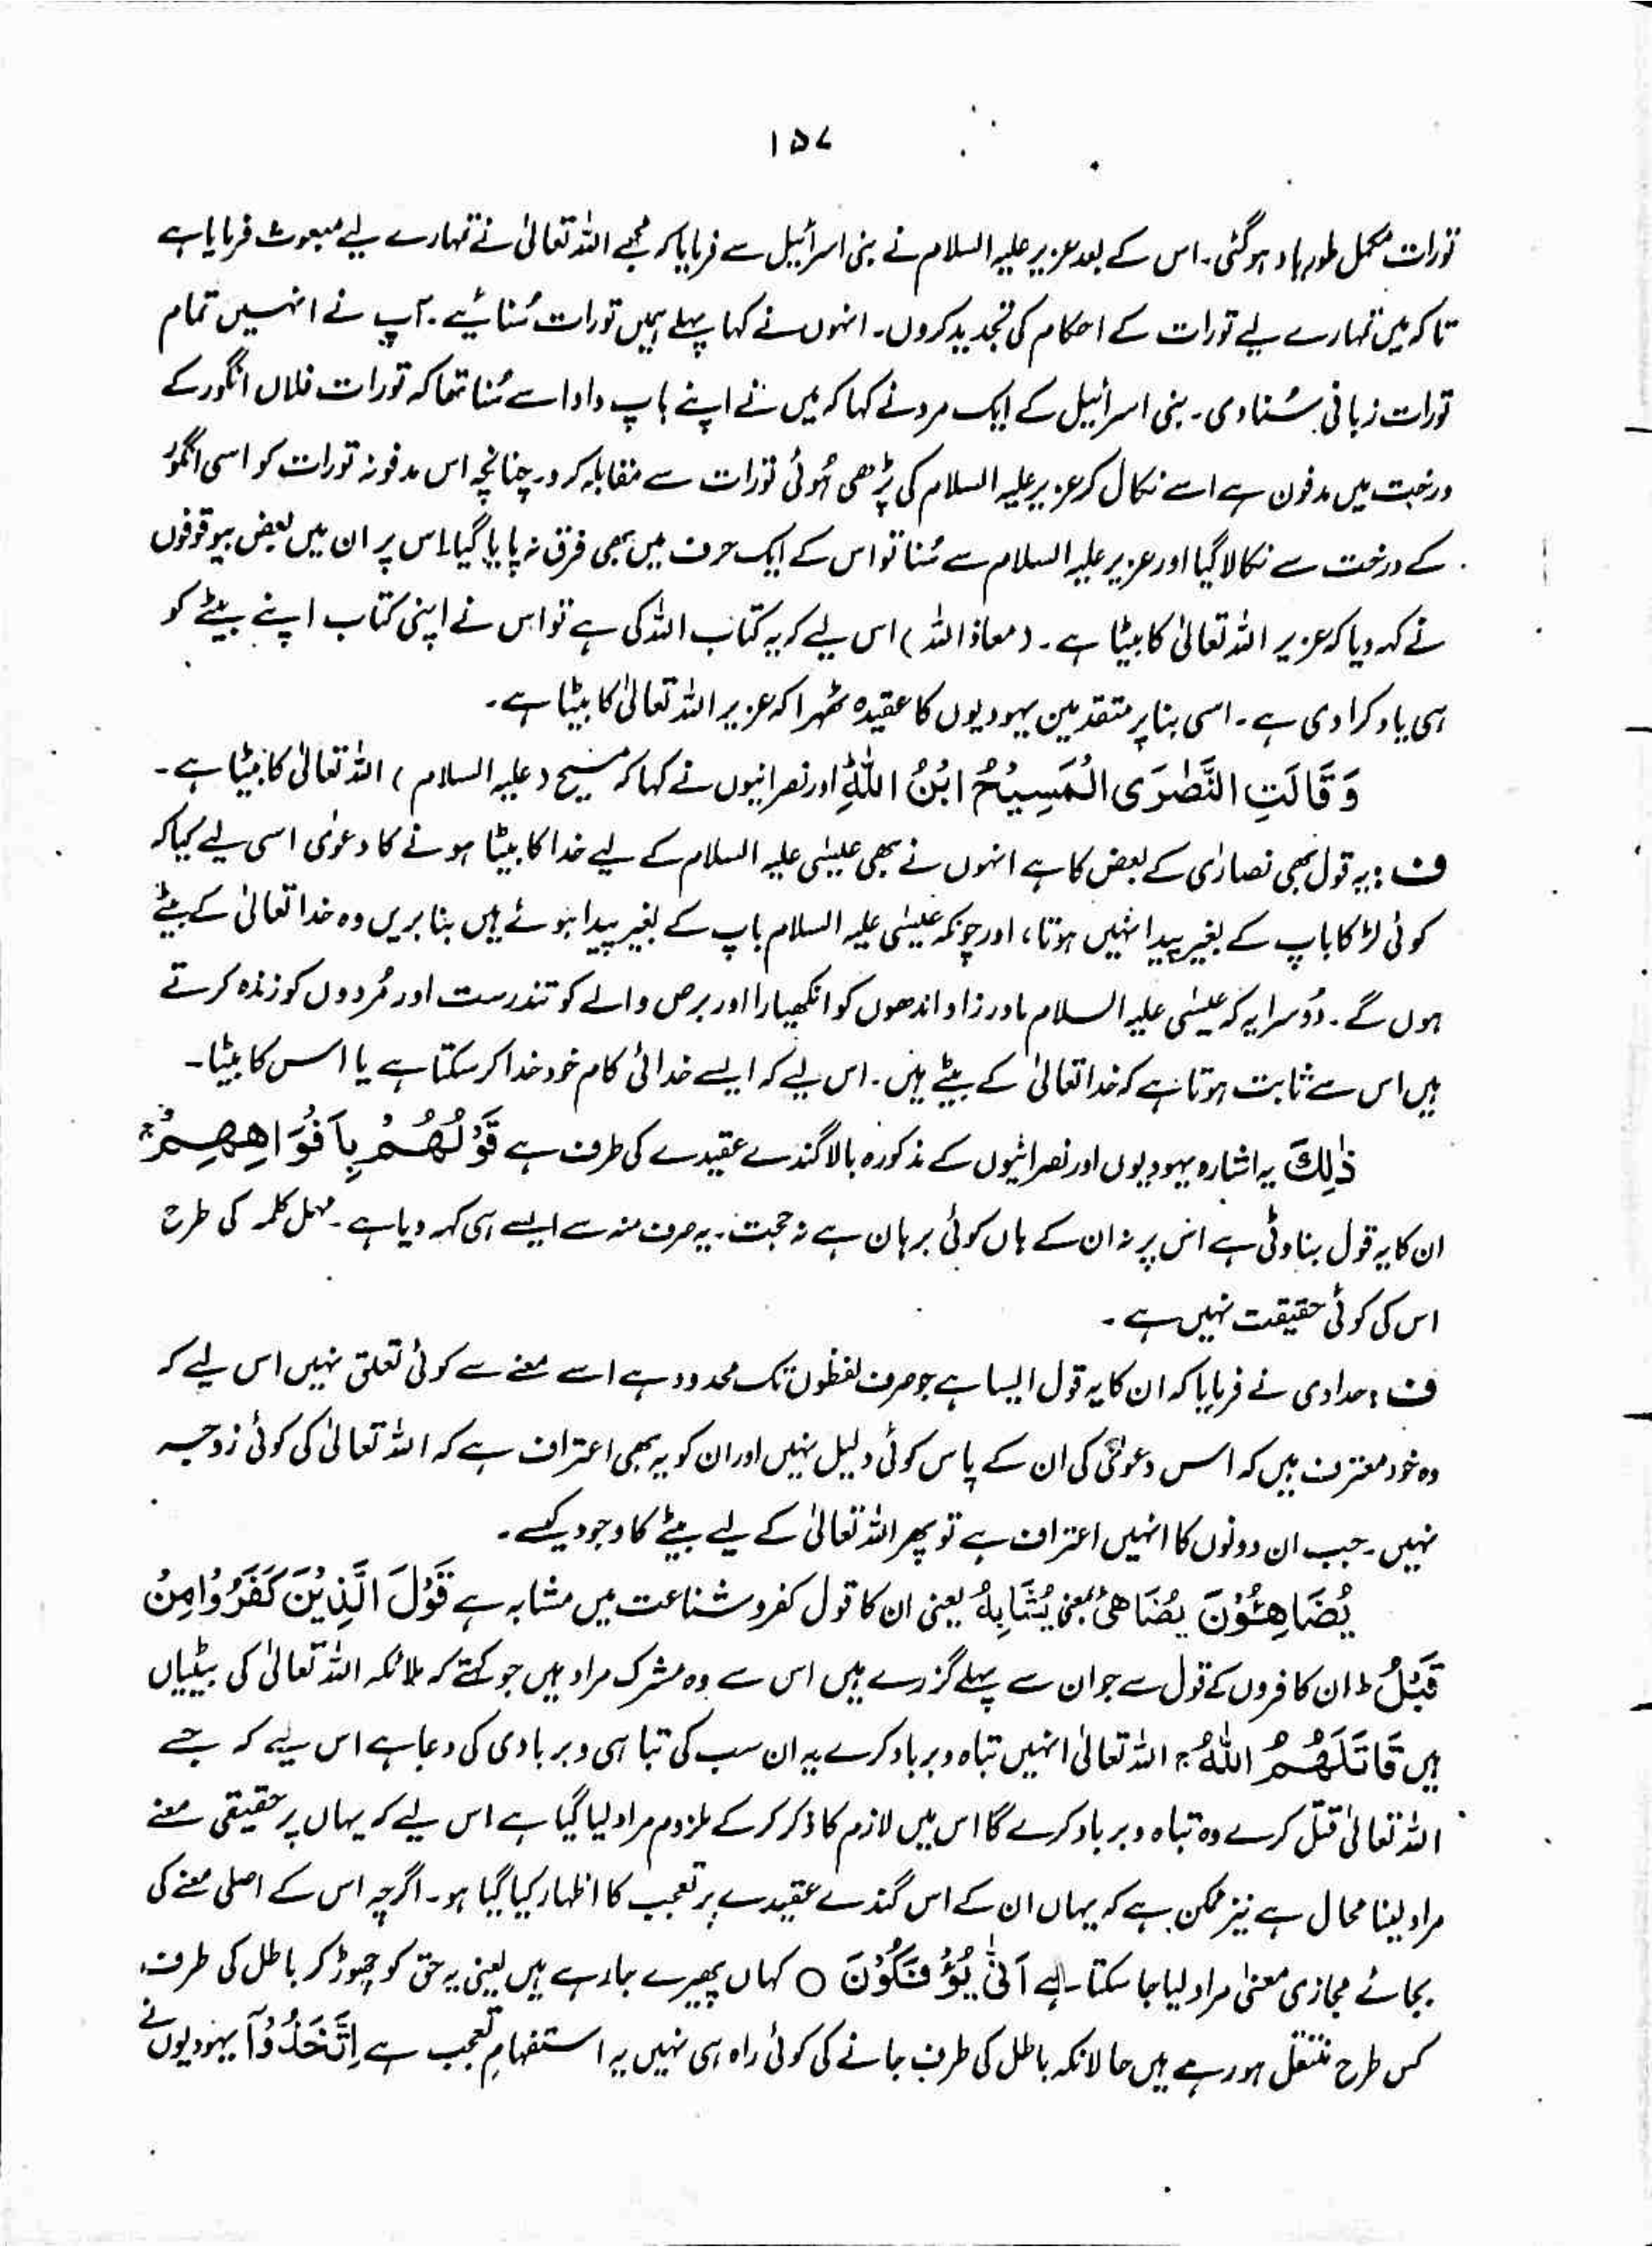 ۱۵۷
تورات مکمل طور یاد ہو گئی۔ اس کے بعد عزیر علیہ السلام نے بنی اسرائیل سے فرمایا کہ مجھے اللہ تعالیٰ نے تمہارے لیے مبعوث فرمایا ہے
تاکہ میں تمہارے لیے تورات کے احکام کی تجدید کروں۔ انہوں نے کہا پہلے ہمیں تورات سُنائیے۔ آپ نے انہیں تمام
تورات زبانی سُنا دی۔ بنی اسرائیل کے ایک مرد نے کہا کہ میں نے اپنے باپ دادا سے سُنا تھا کہ تورات فلاں انگور کے
درخت میں مدفون ہے اسے نکال کر عزیر علیہ السلام کی پڑھی ہُوئی تورات سے مقابلہ کر دو۔ چنانچہ اس مدفونہ تورات کو اسی انگور
کے درخت سے نکالا گیا اور عزیر علیہ السلام سے سُنا تو اس کے ایک حرف میں بھی فرق نہ پایا گیا۔ اس پر ان میں بعض بیوقوفوں
نے کہہ دیا کہ عزیر اللہ تعالیٰ کا بیٹا ہے۔ (معاذ اللہ) اس لیے کہ یہ کتاب اللہ کی ہے تو اس نے اپنی کتاب اپنے بیٹے کو
ہی یاد کرا دی ہے۔ اسی بنا پر متقدمین یہودیوں کا عقیدہ ٹھہرا کہ عزیر اللہ تعالیٰ کا بیٹا ہے۔
وَ قَالَتِ النَّصٰرَى الْمَسِيْحُ ابْنُ اللّٰهِ اور نصرانیوں نے کہا کہ مسیح (علیہ السلام) اللہ تعالیٰ کا بیٹا ہے۔
ف : یہ قول بھی نصارٰی کے بعض کا ہے انہوں نے بھی عیسٰی علیہ السلام کے لیے خدا کا بیٹا ہونے کا دعوٰی اسی لیے کیا کہ
کوئی لڑکا باپ کے بغیر پیدا نہیں ہوتا، اور چونکہ عیسٰی علیہ السلام باپ کے بغیر پیدا ہوئے ہیں بنا بریں وہ خدا تعالیٰ کے بیٹے
ہوں گے۔ دُوسرا یہ کہ عیسٰی علیہ السلام مادر زاد اندھوں کو انکھیارا اور برص والے کو تندرست اور مُردوں کو زندہ کرتے
ہیں اس سے ثابت ہوتا ہے کہ خدا تعالیٰ کے بیٹے ہیں۔ اس لیے کہ ایسے خدائی کام خود خدا کر سکتا ہے یا اس کا بیٹا۔
ذٰلِكَ یہ اشارہ یہودیوں اور نصرانیوں کے مذکورہ بالا گندے عقیدے کی طرف ہے قَوْلُهُمْ بِاَفْوَاهِهِمْ ۚ
ان کا یہ قول بناوٹی ہے اس پر نہ ان کے ہاں کوئی برہان ہے نہ حجت۔ یہ صرف منہ سے ایسے ہی کہہ دیا ہے۔ مہمل کلمہ کی طرح
اس کی کوئی حقیقت نہیں ہے۔
ف : حدادی نے فرمایا کہ ان کا یہ قول ایسا ہے جو صرف لفظوں تک محدود ہے اسے معنے سے کوئی تعلق نہیں اس لیے کہ
وہ خود معترف ہیں کہ اس دعوٰی کی ان کے پاس کوئی دلیل نہیں اور ان کو یہ بھی اعتراف ہے کہ اللہ تعالیٰ کی کوئی زوجہ
نہیں۔ جب ان دونوں کا انہیں اعتراف ہے تو پھر اللہ تعالیٰ کے لیے بیٹے کا وجود کیسے۔
يُضَاهِئُوْنَ يضاهئ بمعنی يُشَابِهُ یعنی ان کا قول کفر و شناعت میں مشابہ ہے قَوْلَ الَّذِيْنَ كَفَرُوْا مِنْ
قَبْلُ ؕ ان کافروں کے قول سے جو ان سے پہلے گزرے ہیں اس سے وہ مشرک مراد ہیں جو کہتے کہ ملائکہ اللہ تعالیٰ کی بیٹیاں
ہیں قَاتَلَهُمُ اللّٰهُ ۚ اللہ تعالیٰ انہیں تباہ و برباد کرے یہ ان سب کی تباہی و بربادی کی دعا ہے اس لیے کہ جسے
اللہ تعالیٰ قتل کرے وہ تباہ و برباد کرے گا اس میں لازم کا ذکر کر کے ملزوم مراد لیا گیا ہے اس لیے کہ یہاں پر حقیقی معنے
مراد لینا محال ہے نیز ممکن ہے کہ یہاں ان کے اس گندے عقیدے پر تعجب کا اظہار کیا گیا ہو۔ اگرچہ اس کے اصلی معنے کی
بجائے مجازی معنیٰ مراد لیا جا سکتا ہے اَنّٰى يُؤْفَكُوْنَ ○ کہاں پھیرے جا رہے ہیں یعنی یہ حق کو چھوڑ کر باطل کی طرف
کس طرح منتقل ہو رہے ہیں حالانکہ باطل کی طرف جانے کی کوئی راہ ہی نہیں یہ استفہامِ تعجب ہے اِتَّخَذُوْٓا یہودیوں نے